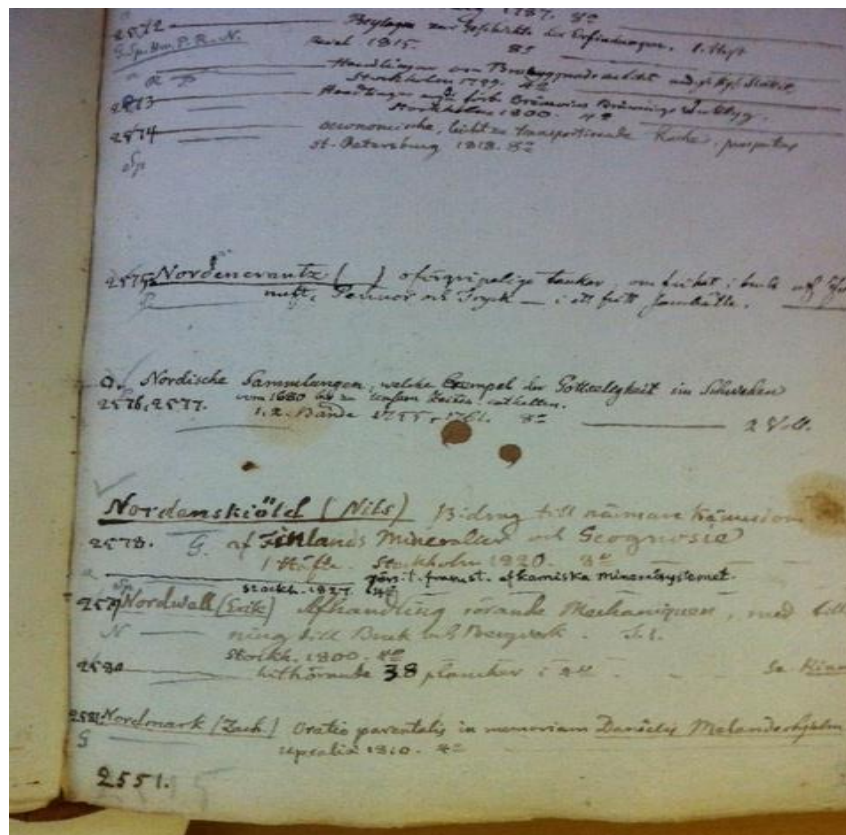 1787. 8º
2572
Beylagen zur Geschichte der Erfindungen. 1. Heft
G. Sp. P. R. N. 1815. 8º
Handlingar om
Stockholm 1799. 4º
2573 Handlingar
Stockholm 1800. 4º
2574 oeconomische, leicht zu transportirende Küche.
Sp St. Petersburg 1818. 8º
2575 Nordencrantz ( ) oförgripelige tankar, om frihet i bruk af
nuft, Pennor och Tryck — i ett fritt Samhälle.
Nordische Sammlungen, welche Exempel der Gottseligkeit im Schweden
2576, 2577. vom 1680 bis zu unsern Zeiten enthalten.
1. 2. Bände 1755, 1761. 8º 2 Voll.
Nordenskiöld (Nils) Bidrag till närmare kännedom
2578. G. af Finlands Mineralier och Geognosie
1 Häfte. Stockholm 1820. 8º
förs. t. framst. af kemiska mineralsystemet.
Sp Stockh. 1827. 4º
2579 Nordwall (Erik) Afhandling rörande Mechaniquen, med till
N ning till Bruk och Bergverk.
Stockh. 1800. 4º
2580 hithörande 38 plancher i 4º
2581 Nordmark (Zach.) Oratio parentalis in memoriam Danielis Melanderhjelm
G Upsaliæ 1810. 4º
2551.